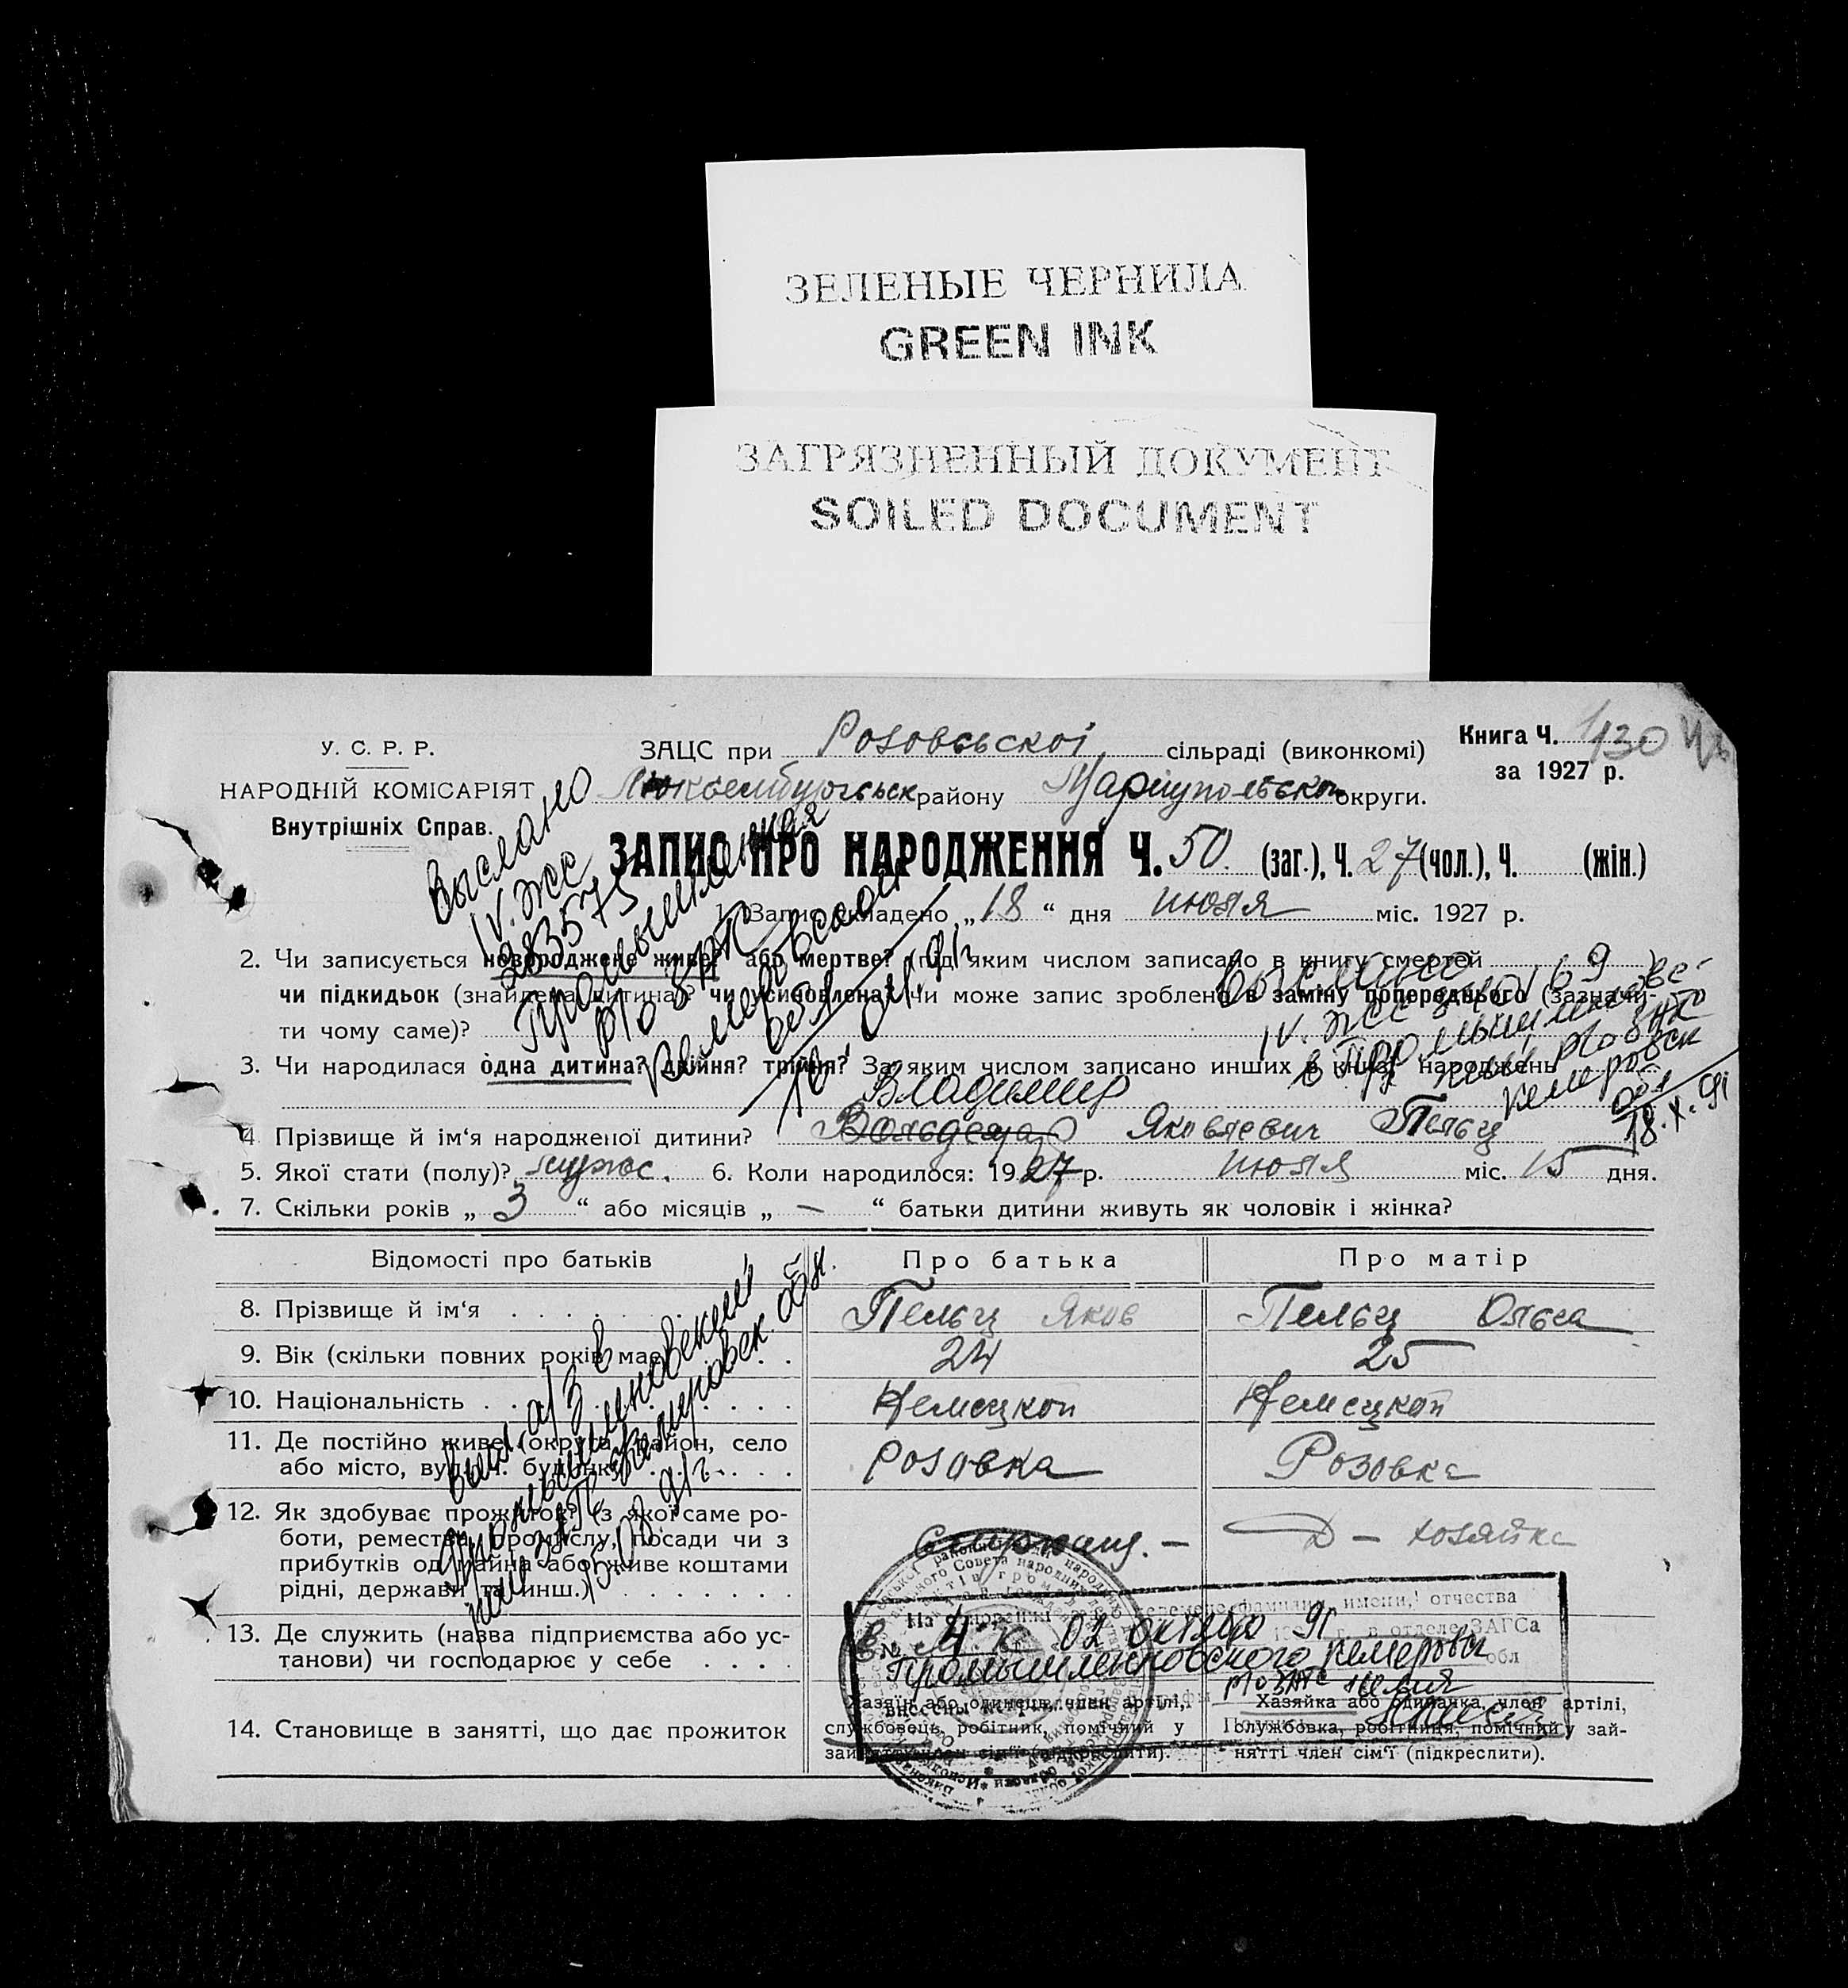 ЗЕЛЕНЫЕ ЧЕРНИЛА
GREEN INK
ЗАГРЯЗНЕННЫЙ ДОКУМЕНТ
SOILED DOCUMENT
У. С. Р. Р.
НАРОДНІЙ КОМІСАРІЯТ
Внутрішніх Справ.
ЗАЦС при Розовсьскоі сільраді (виконкомі)
Люксембургськ району Маріупольской округи.
Книга Ч. 1/130
за 1927 р.
ЗАПИС ПРО НАРОДЖЕННЯ Ч. 50. (заг.), Ч. 27 (чол.), Ч. (жін.)
1. Запис складено „18“ дня июля міс. 1927 р.
2. Чи записується новороджене живе? або мертве? (під яким числом записано в книгу смертей
чи підкидьок (знайдена дитина)? чи усиновлена? Чи може запис зроблено в заміну попереднього (зазначи-
ти чому саме)?
3. Чи народилася одна дитина? двійня? трійня? За яким числом записано инших в книзі народжень
Владимир
4 Прізвище й ім‘я народженої дитини? Вольдемар Яковлевич Пельц
5. Якої стати (полу)? мужс. 6. Коли народилося: 1927 р. июля міс. 15 дня.
7. Скільки років „ 3 “ або місяців „ — “ батьки дитини живуть як чоловік і жінка?
Відомості про батьків Про батька Про матір
8. Прізвище й ім‘я Пельц Яков Пельц Ольга
9. Вік (скільки повних років має) 24 25
10. Національність Немецкой Немецкой
11. Де постійно живе (округа, район, село
або місто, вул. ч. будинку) Розовка Розовка
12. Як здобуває прожиток? (з якої саме ро-
боти, ремества, промислу, посади чи з
прибутків од майна або живе коштами
рідні, держави та инш.)
Д – хозяйка
13. Де служить (назва підприємства або ус-
танови) чи господарює у себе
14. Становище в занятті, що дає прожиток
Хазяїн або одинець, член артілі,
службовець, робітник, помічний у
занятті член сім‘ї (підкреслити).
Хазяйка або одиначка, член артілі,
службовка, робітниця, помічний у зай-
нятті член сім‘ї (підкреслити).
Выслано
IV. ЖС
283575
Промышленная
р/о ЗАГС
Кемеровской
обл
10.04.91г
Выслано
IV. ЖС
в Промышленновс
кий р/о ЗАГС
Кемеровск
обл
18.X.91
Высл. а/з в
Промышленновский
ЗАГС Кемеровск. обл.
15.08.91г.
фамилии, имени, отчества
02 октября 91
в отделе ЗАГСа
Промышленновского Кемеровск обл
р/о ЗАГС
внесены